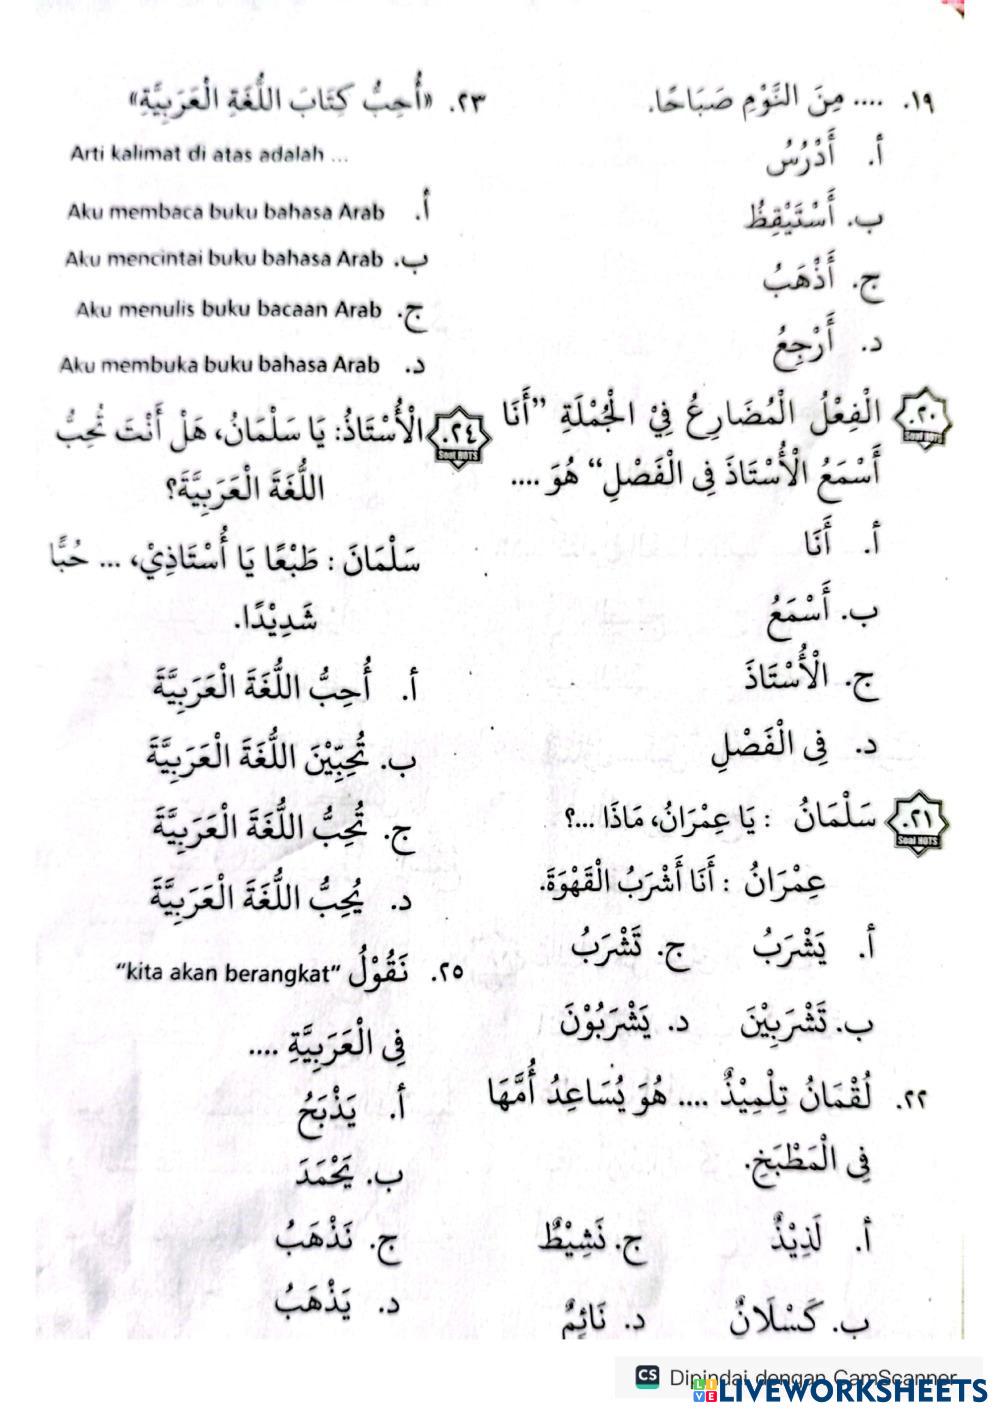 ١٩. .... مِنَ النَّوْمِ صَبَاحًا.
أ. أَدْرُسُ
ب. أَسْتَيْقِظُ
ج. أَذْهَبُ
د. أَرْجِعُ
٢٠. الْفِعْلُ الْمُضَارِعُ فِيْ الْجُمْلَةِ ”أَنَا
Soal HOTS
أَسْمَعُ الْأُسْتَاذَ فِى الْفَصْلِ“ هُوَ ....
أ. أَنَا
ب. أَسْمَعُ
ج. الْأُسْتَاذَ
د. فِى الْفَصْلِ
٢١. سَلْمَانُ : يَا عِمْرَانُ، مَاذَا ...؟
Soal HOTS
عِمْرَانُ : أَنَا أَشْرَبُ الْقَهْوَةَ.
أ. يَشْرَبُ ج. تَشْرَبُ
ب. تَشْرَبِيْنَ د. يَشْرَبُوْنَ
٢٢. لُقْمَانُ تِلْمِيْذٌ .... هُوَ يُسَاعِدُ أُمَّهَا
فِى الْمَطْبَخِ.
أ. لَذِيْذٌ ج. نَشِيْطٌ
ب. كَسْلَانٌ د. نَائِمٌ
٢٣. «أُحِبُّ كِتَابَ اللُّغَةِ الْعَرَبِيَّةِ»
Arti kalimat di atas adalah ...
أ. Aku membaca buku bahasa Arab
ب. Aku mencintai buku bahasa Arab
ج. Aku menulis buku bacaan Arab
د. Aku membuka buku bahasa Arab
٢٤. الْأُسْتَاذُ: يَا سَلْمَانُ، هَلْ أَنْتَ تُحِبُّ
Soal HOTS
اللُّغَةَ الْعَرَبِيَّةَ؟
سَلْمَانَ : طَبْعًا يَا أُسْتَاذِيْ، ... حُبًّا
شَدِيْدًا.
أ. أُحِبُّ اللُّغَةَ الْعَرَبِيَّةَ
ب. تُحِبِّيْنَ اللُّغَةَ الْعَرَبِيَّةَ
ج. تُحِبُّ اللُّغَةَ الْعَرَبِيَّةَ
د. يُحِبُّ اللُّغَةَ الْعَرَبِيَّةَ
٢٥. نَقُوْلُ “kita akan berangkat”
فِى الْعَرَبِيَّةِ ....
أ. يَذْبَحُ
ب. يَحْمَدَ
ج. نَذْهَبُ
د. يَذْهَبُ
CS Dipindai dengan CamScanner
LIVEWORKSHEETS